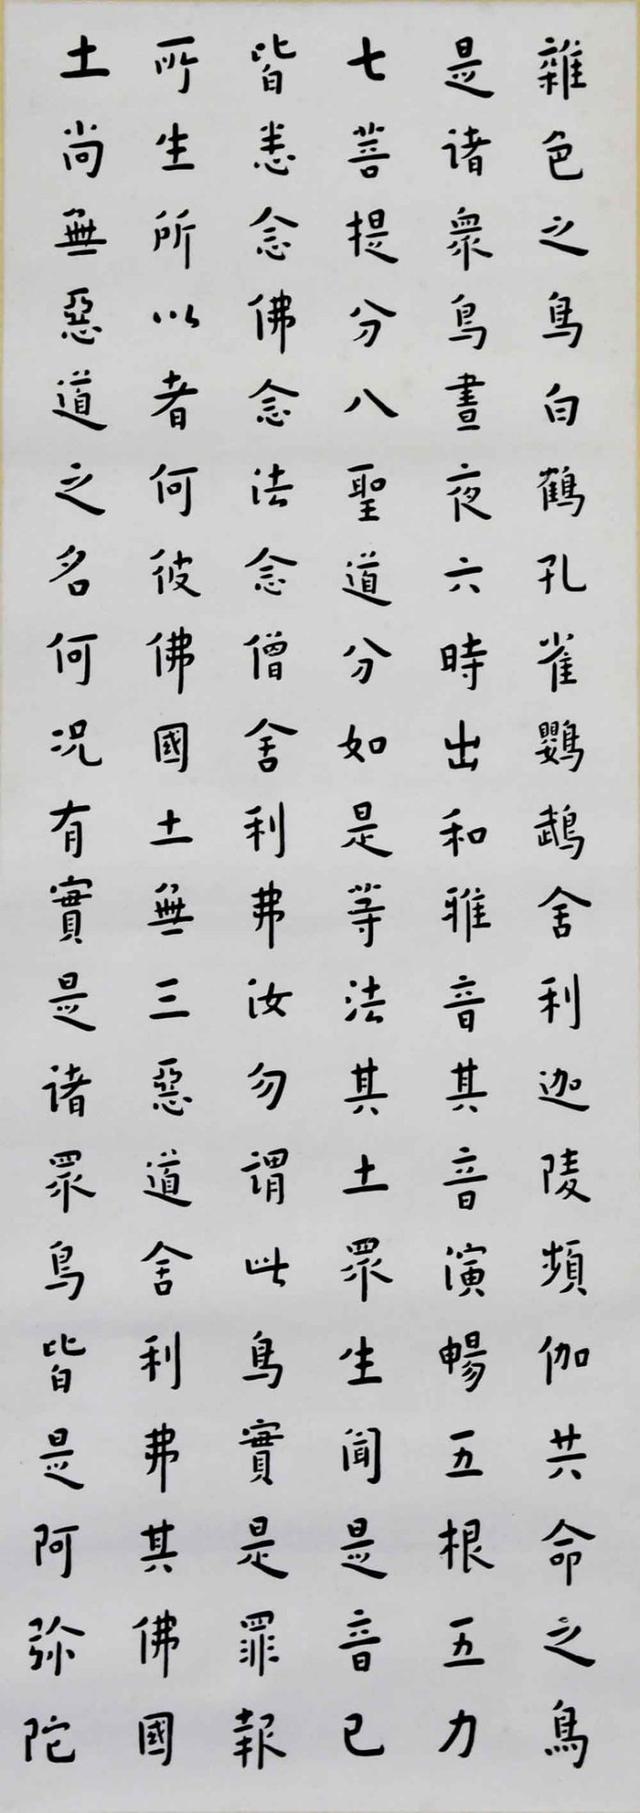 雜色之鳥白鶴孔雀鸚鵡舍利迦陵頻伽共命之鳥
是诸衆鳥晝夜六時出和雅音其音演暢五根五力
七菩提分八聖道分如是等法其土眾生聞是音已
皆悉念佛念法念僧舍利弗汝勿謂此鳥實是罪報
所生所以者何彼佛國土無三惡道舍利弗其佛國
土尚無惡道之名何况有實是诸眾鳥皆是阿弥陀